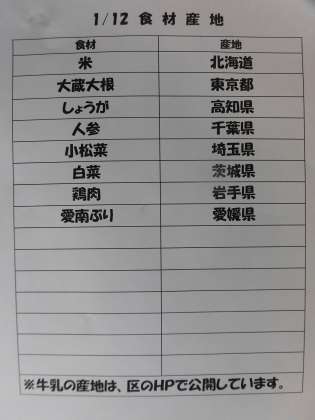 1/12 食材産地
食材 産地
米 北海道
大蔵大根 東京都
しょうが 高知県
人参 千葉県
小松菜 埼玉県
白菜 茨城県
鶏肉 岩手県
愛南ぶり 愛媛県
※牛乳の産地は、区のHPで公開しています。